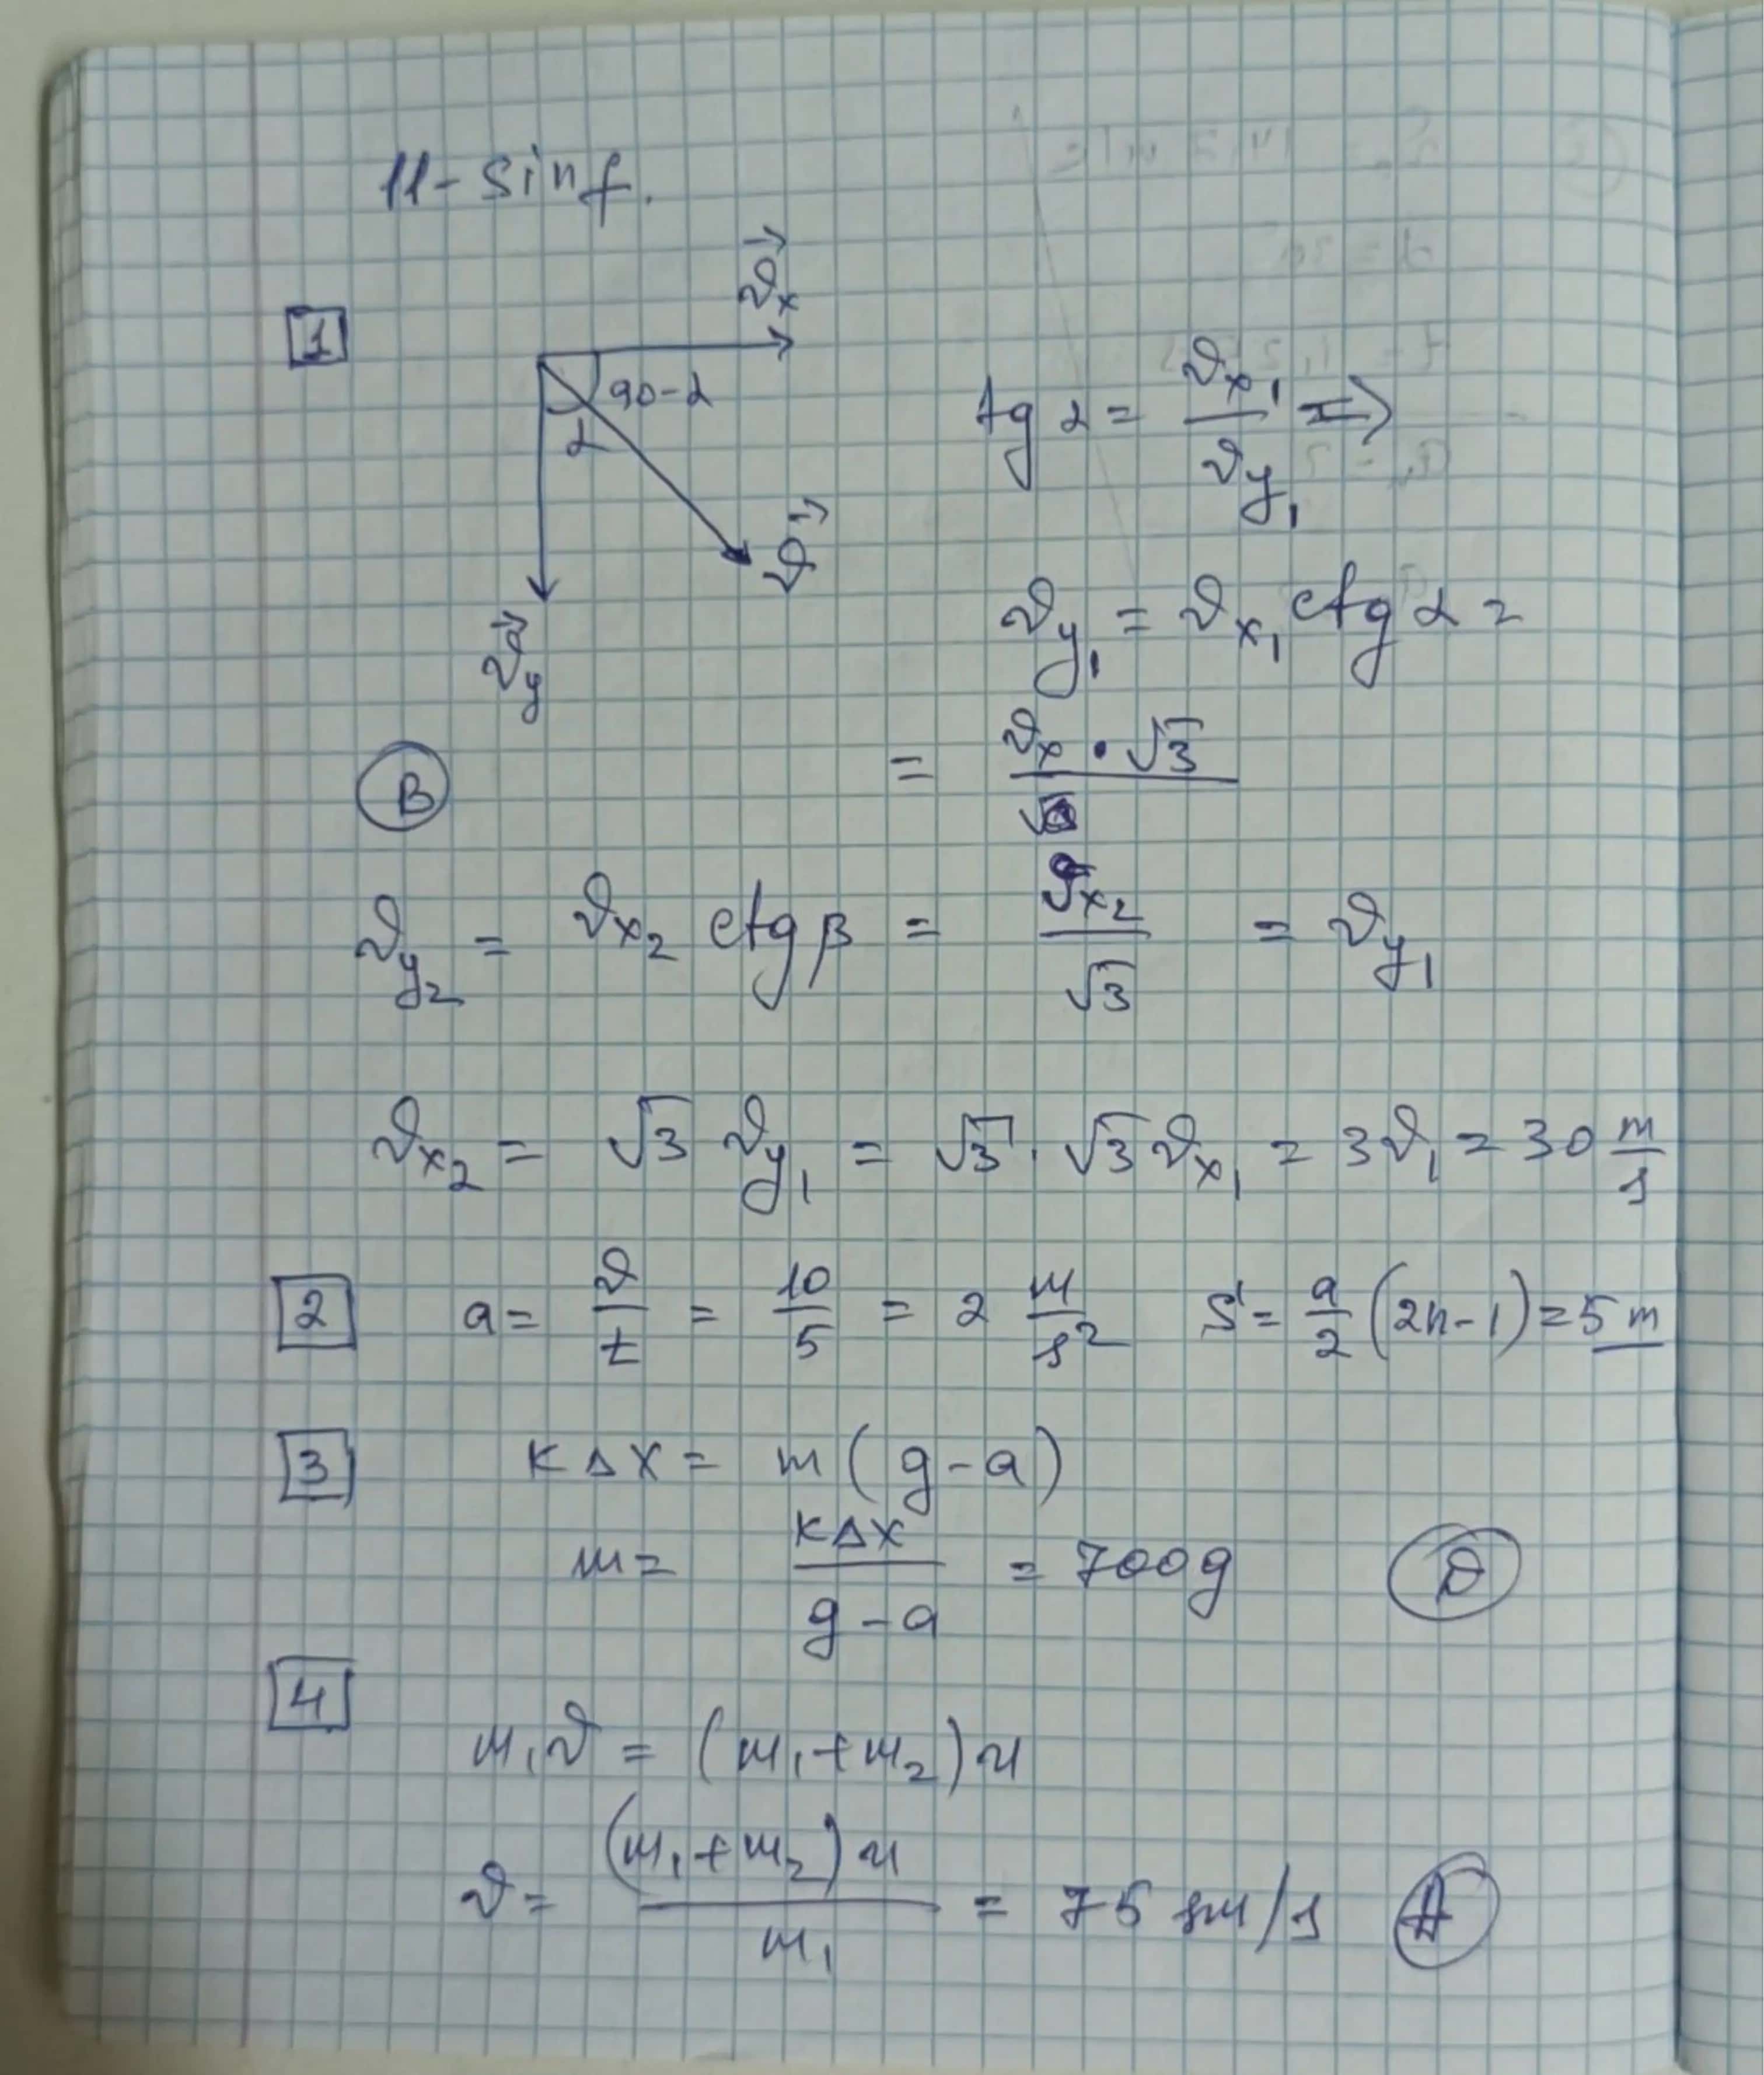 11-sinf.
1
ϑₓ→
90-α
α
ϑ→
ϑy→
tg α = ϑx₁ / ϑy₁ ⇒
ϑy₁ = ϑx₁ ctg α =
= ϑx · √3
B
ϑy₂ = ϑx₂ ctg β = ϑx₂ / √3 = ϑy₁
ϑx₂ = √3 ϑy₁ = √3 · √3 ϑx₁ = 3ϑ₁ = 30 m/s
2 a = ϑ/t = 10/5 = 2 m/s² S = a/2 (2n-1) = 5 m
3 kΔx = m(g-a)
m = kΔx / (g-a) = 700g D
4
m₁ϑ = (m₁+m₂)u
ϑ = (m₁+m₂)u / m₁ = 75 sm/s A